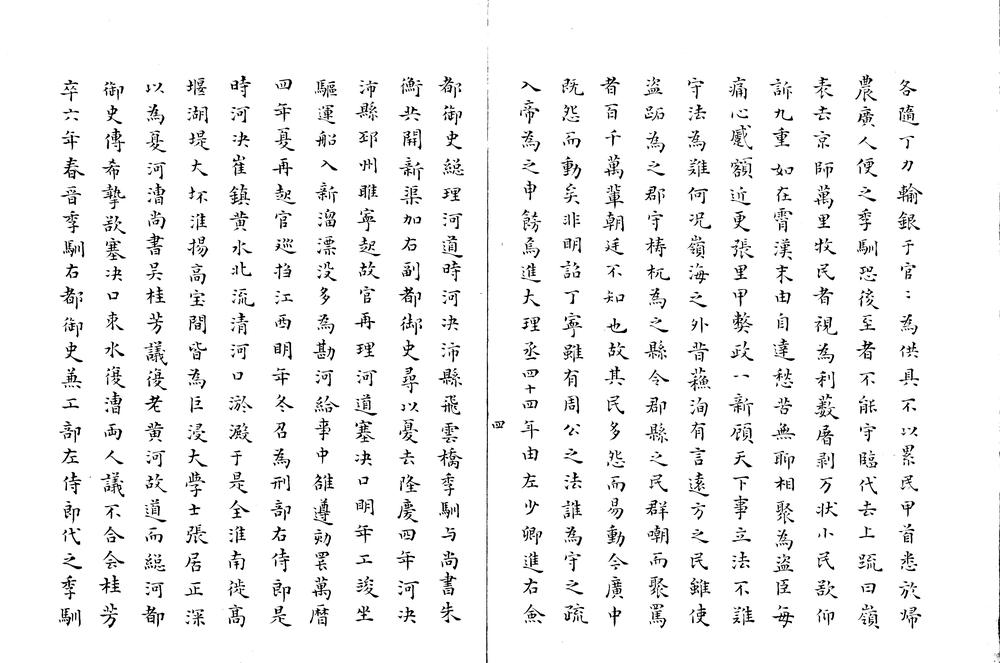 各隨丁力輸銀于官〻為供具不以累民甲首悉放歸
農廣人便之季馴恐後至者不能守臨代去上疏曰嶺
表去京師萬里牧民者視為利藪屠剥万状小民欲仰
訴九重如在霄漢末由自達愁苦無聊相聚為盗臣每
痛心蹙額近更張里甲弊政一新顧天下事立法不難
守法為難何况嶺海之外昔蘓洵有言遠方之民雖使
盗跖為之郡守梼杌為之縣令郡縣之民群嘲而聚罵
者百千萬輩朝廷不知也故其民多怨而易動今廣中
既怨而動矣非明詔丁寧雖有周公之法誰為守之疏
入帝為之申飭焉進大理丞四十四年由左少卿進右僉
四
都御史総理河道時河决沛縣飛雲橋季馴与尚書朱
衡共開新渠加右副都御史尋以憂去隆慶四年河决
沛縣邳州睢寧起故官再理河道塞决口明年工竣坐
驅運船入新溜漂没多為勘河給事中雒遵劾罷萬曆
四年夏再起官巡撫江西明年冬召為刑部右侍郎是
時河决崔鎮黄水北流清河口淤澱于是全淮南徙高
堰湖堤大坏淮揚高宝間皆為巨浸大學士張居正深
以為憂河漕尚書吴桂芳議復老黄河故道而総河都
御史傅希摯欲塞决口束水復漕両人議不合会桂芳
卒六年春晋季馴右都御史兼工部左侍郎代之季馴